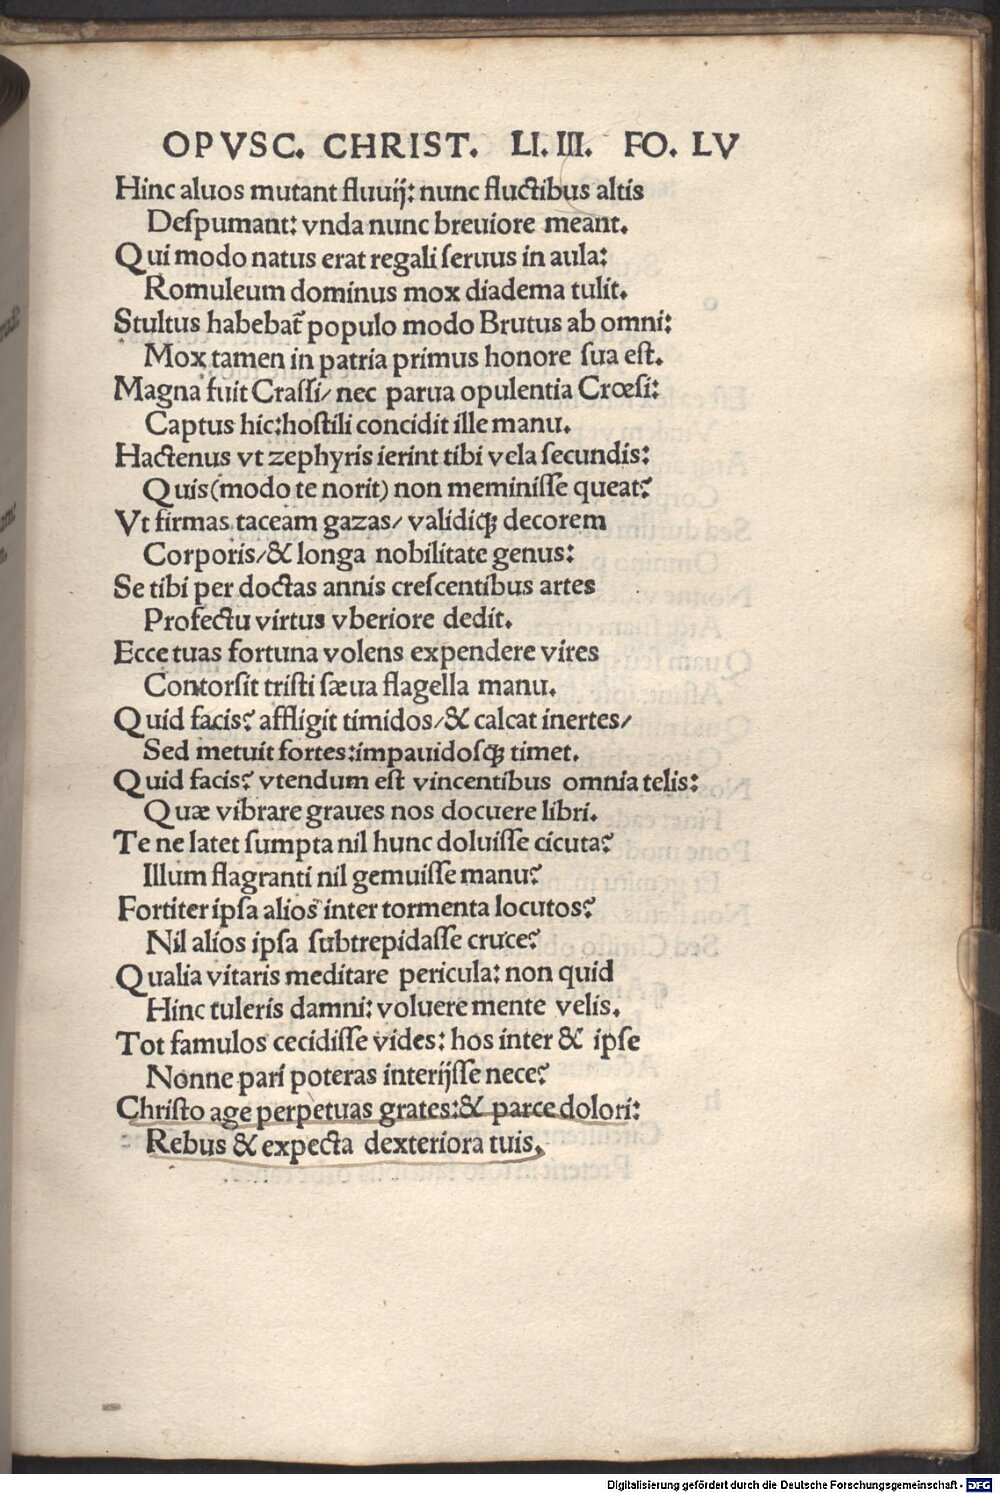 OPVSC. CHRIST. LI. III. FO. LV
Hinc aluos mutant fluuij: nunc fluctibus altis
Deſpumant: vnda nunc breuiore meant.
Qui modo natus erat regali ſeruus in aula:
Romuleum dominus mox diadema tulit.
Stultus habebat᷑ populo modo Brutus ab omni:
Mox tamen in patria primus honore ſua eſt.
Magna fuit Craſſi/ nec parua opulentia Crœſi:
Captus hic: hoſtili concidit ille manu.
Hactenus vt zephyris ierint tibi vela ſecundis:
Quis (modo te norit) non meminiſſe queat?
Vt firmas taceam gazas/ validiqꝫ decorem
Corporis/ & longa nobilitate genus:
Se tibi per doctas annis creſcentibus artes
Profectu virtus vberiore dedit.
Ecce tuas fortuna volens expendere vires
Contorſit triſti ſæua flagella manu.
Quid facis? affligit timidos/ & calcat inertes/
Sed metuit fortes: impauidoſqꝫ timet.
Quid facis? vtendum eſt vincentibus omnia telis:
Quæ vibrare graues nos docuere libri.
Te ne latet ſumpta nil hunc doluiſſe cicuta?
Illum flagranti nil gemuiſſe manu?
Fortiter ipſa alios inter tormenta locutos?
Nil alios ipſa ſubtrepidaſſe cruce?
Qualia vitaris meditare pericula: non quid
Hinc tuleris damni: voluere mente velis.
Tot famulos cecidiſſe vides: hos inter & ipſe
Nonne pari poteras interijſſe nece?
Chriſto age perpetuas grates: & parce dolori:
Rebus & expecta dexteriora tuis.
Digitalisierung gefördert durch die Deutsche Forschungsgemeinschaft - DFG